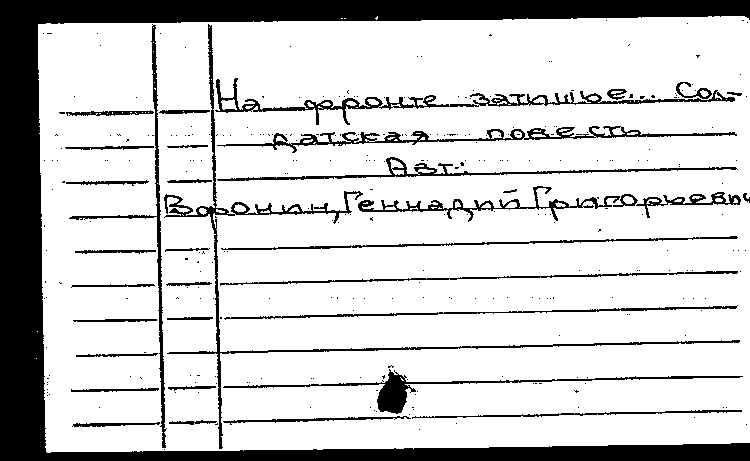 На фронте затишье... Сол-
датская повесть
Авт.:
Воронин, Геннадий Григорьевич